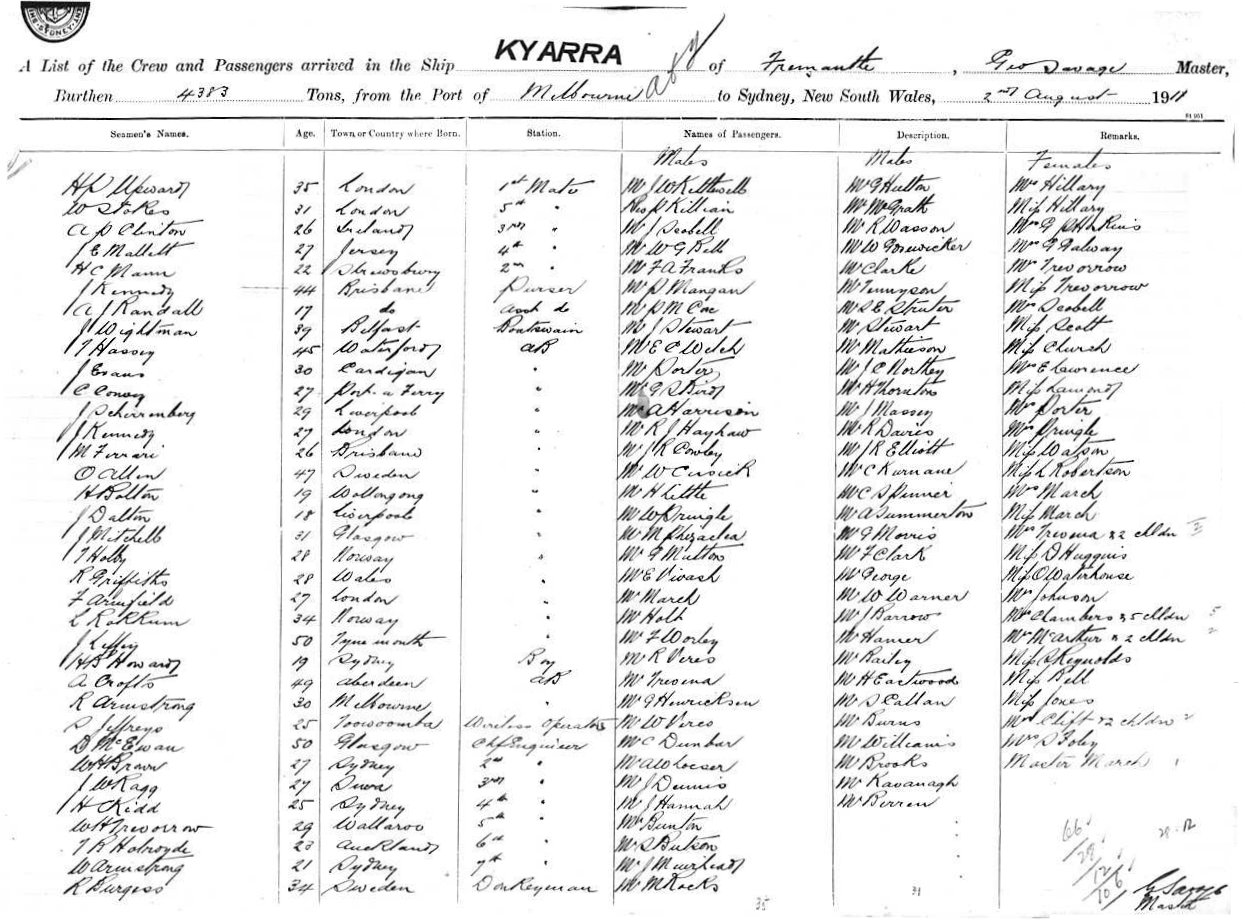 SYDNEY
KYARRA
A List of the Crew and Passengers arrived in the Ship of Fremantle, Geo Savage Master,
Burthen 4383 Tons, from the Port of Melbourne to Sydney, New South Wales, 2nd August 1911
Seamen's Names. Age. Town or Country where Born. Station. Names of Passengers. Description. Remarks.
Males Males Females
H P Upward 35 London 1st Mate Mr J W Kettlewell Mr G Hutton Mrs Hillary
W Stokes 31 London 5th " P Killian Mr McGrath Miss Hillary
A P Clinton 26 Ireland 3rd " Mr J Scobell Mr R Wasson Mrs G P Harkins
J E Mallett 27 Jersey 4th " Mr W G Bell Mr W Goswicker Mrs G Galway
H C Mann 22 Shrewsbury 2nd " Mr F A Franks Mr Clarke Mrs Trevorrow
J Kennedy 44 Brisbane Purser Mr P Mangan Mr Tennyson Miss Trevorrow
A J Randall 17 do Asst do Mr P M Coe Mr S E Struter Mrs Scobell
J Wightman 39 Belfast Boatswain Mr J Stewart Mr Stewart Miss Scott
T Hassey 45 Waterford AB Mr E C Welch Mr Mathieson Miss Church
J Evans 30 Cardigan " Mr Porter Mr J C Northey Mrs E Lawrence
C Convey 27 Port a Ferry " Mr G S Bird Mr H Thornton Miss Lamond
J Scherrenberg 29 Liverpool " Mr A Harrison Mr J Massey Mrs Porter
J Kennedy 27 London " Mr R J Hayhaw Mr R Davis Mrs Pringle
M Ferrari 26 Brisbane " Mr J R Cowley Mr J R Elliott Miss Watson
O Allen 47 Sweden " Mr W Cusick Mr C Kurnane Miss L Robertson
H Bolton 19 Wollongong " Mr H Little Mr C S Pinner Mrs March
J Dalton 18 Liverpool " Mr W Pringle Mr A Summerton Miss March
J Mitchell 31 Glasgow " Mr M Phizaclea Mr G Morris Mrs Trevena & 2 chldn 2
T Holby 28 Norway " Mr G Mutton Mr F Clark Miss D Huggins
R Griffiths 28 Wales " Mr E Vivash Mr George Miss O Waterhouse
F Armfield 27 London " Mr March Mr W Warner Mrs Johnson
L Rokkum 34 Norway " Mr Holt Mr J Barrow Mrs Chambers & 5 chldn 5
J 50 Tynemouth " Mr F Worley Mr Hamer Mrs McArthur & 2 chldn 2
H B Howard 19 Sydney Boy Mr R Veres Mr Railey Miss S Reynolds
A Crofts 49 Aberdeen AB Mr Trevena Mr H Eastwood Miss Bell
R Armstrong 30 Melbourne " Mr G Henricksen Mr S Callan Miss Jones
S Jeffreys 25 Toowoomba Wireless Operator Mr W Veres Mr Burns Mrs Clift & 2 chldn 2
D McEwan 50 Glasgow Chf Engineer Mr C Dunbar Mr Williams Mrs S Foley
W H Brown 27 Sydney 2nd " Mr A W Loeser Mr Brooks Master March 1
J W Ragg 27 Suva 3rd " Mr J Dennis Mr Kavanagh
H Kidd 25 Sydney 4th " Mr J Hannah Mr Berren
W H Trevorrow 29 Wallaroo 5th " Mr Bunton
T R Holroyde 23 Auckland 6th " Mr S Butson
W Armstrong 21 Sydney 7th " Mr J Muirhead
R Burgess 34 Sweden Donkeyman Mr M Rocks
66
29 12
12
106
35 31
G Savage
Master